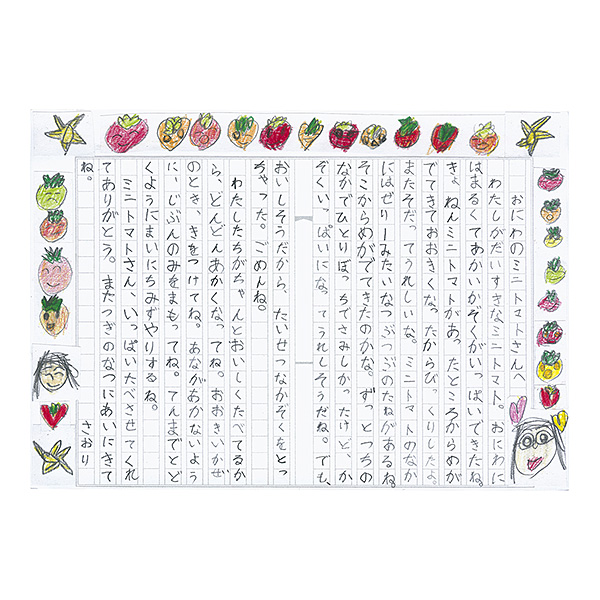 おにわのミニトマトさんへ
わたしがだいすきなミニトマト。おにわに
はまるくてあかいかぞくがいっぱいできたね。
きょねんミニトマトがあったところからめが
でてきておおきくなったからびっくりしたよ。
またそだってうれしいな。ミニトマトのなか
にはぜりーみたいなつぶつぶのたねがあるね。
そこからめがでてきたのかな。ずっとつちの
なかでひとりぼっちでさみしかったけど、か
ぞくいっぱいになってうれしそうだね。でも、
おいしそうだから、たいせつなかぞくをとっ
ちゃった。ごめんね。
わたしたちがちゃんとおいしくたべてるか
ら、どんどんあかくなってね。おおきいかぜ
のとき、きをつけてね。あながあかないよう
に、じぶんのみをまもってね。てんまでとど
くようにまいにちみずやりするね。
ミニトマトさん、いっぱいたべさせてくれ
てありがとう。またつぎのなつにあいにきて
ね。
さおり